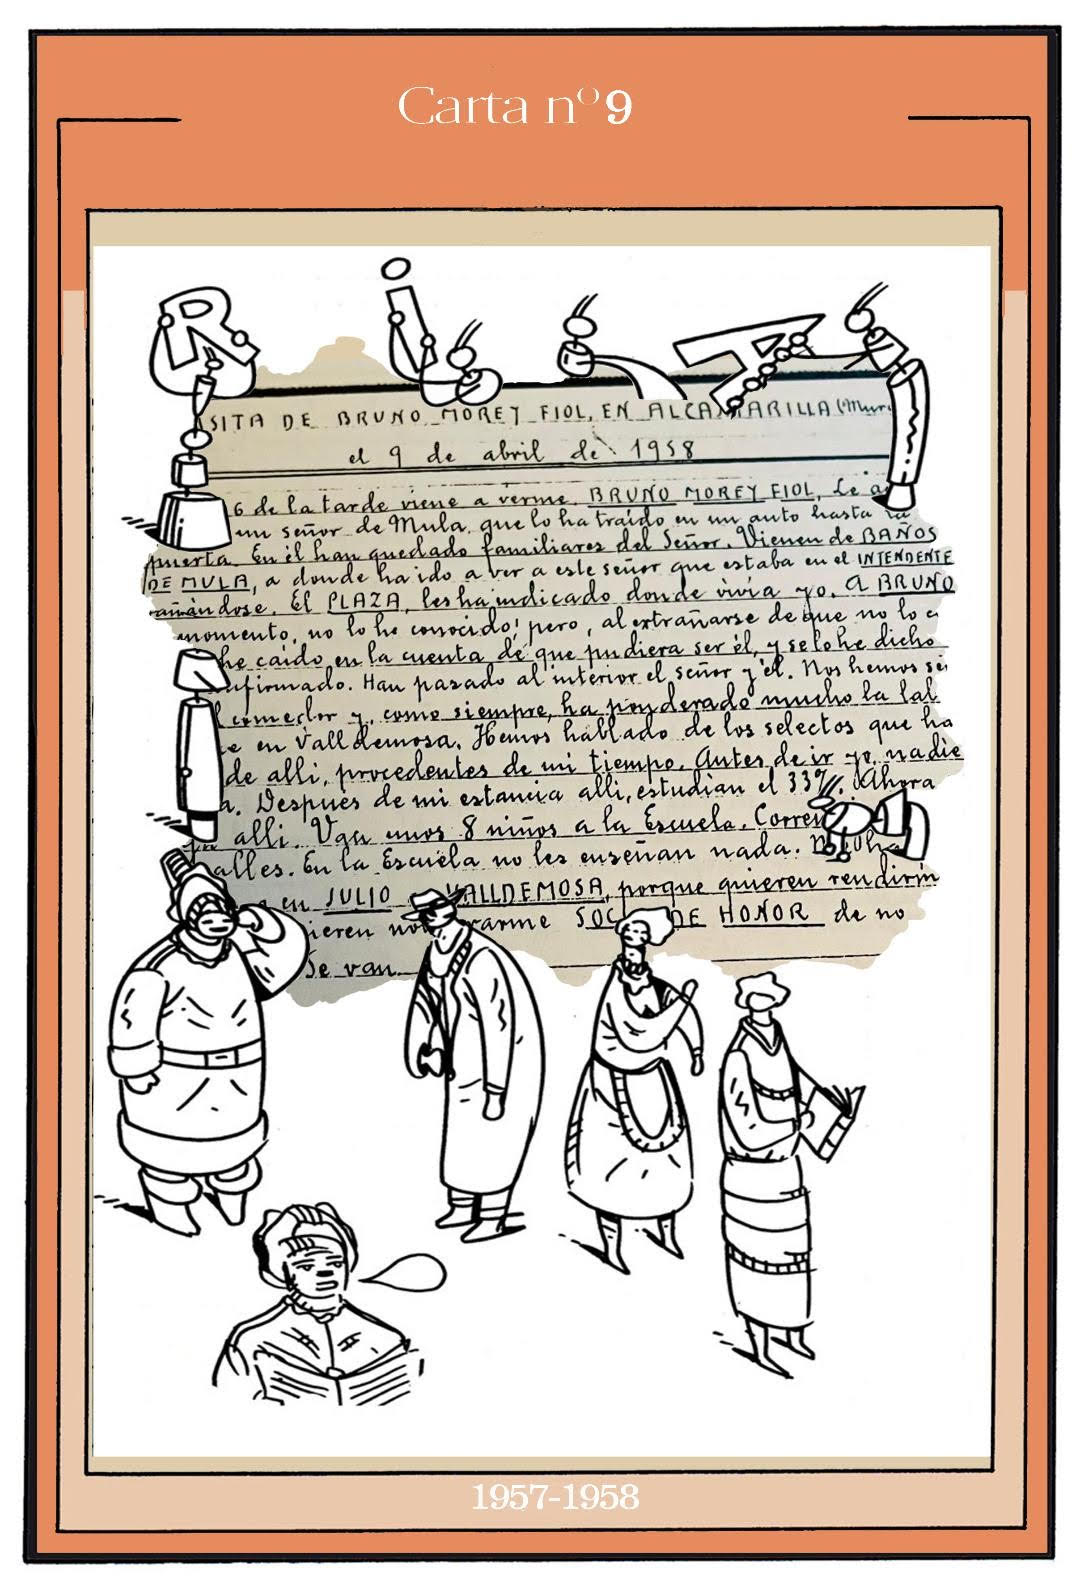 Carta nº9
R i L A
SITA DE BRUNO MOREY FIOL, EN ALCANTARILLA (Mur
el 9 de abril de 1958
6 de la tarde viene a verme, BRUNO MOREY FIOL. Le a
un señor de Mula, que lo ha traído en un auto hasta la
puerta. En él han quedado familiares del Señor. Vienen de BAÑOS
DE MULA, a donde ha ido a ver a este señor que estaba en el INTENDENTE
añándose. El PLAZA, les ha indicado donde vivía yo. A BRUNO
momento, no lo he conocido; pero, al extrañarse de que no lo c
he caído en la cuenta de que pudiera ser él, y se lo he dicho
nfirmado. Han pasado al interior el señor y él. Nos hemos se
l comedor y, como siempre, ha ponderado mucho la lab
e en Valldemosa. Hemos hablado de los selectos que ha
de alli, procedentes de mi tiempo. Antes de ir yo, nadie
a. Despues de mi estancia alli, estudian el 33%. Ahora
alli. Van unos 8 niños a la Escuela. Corren
alles. En la Escuela no les enseñan nada.
en JULIO VALLDEMOSA, porque quieren rendirm
ieren no rarme SOC DE HONOR de no
Se van
1957-1958